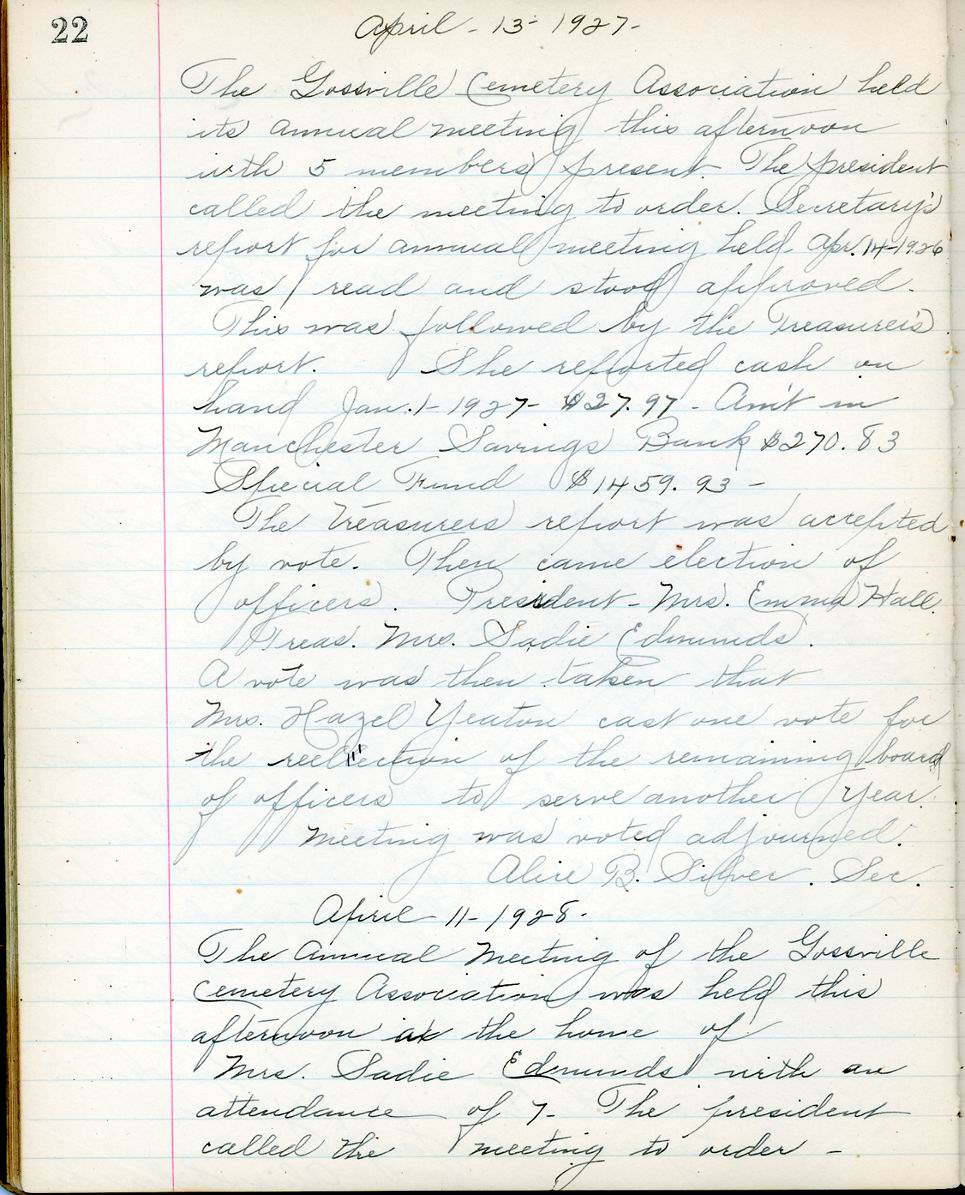 22
April - 13 - 1927 -
The Gossville Cemetery Association held
its annual meeting this afternoon
with 5 members present. The president
called the meeting to order. Secretary's
report for annual meeting held Apr. 14-1926
was read and stood approved.
This was followed by the Treasurer's
report. She reported cash on
hand Jan. 1 - 1927 - $27.97 - Am't in
Manchester Savings Bank $270.83
Special Fund $1459.93 -
The Treasurers report was accepted
by vote. Then came election of
officers. President - Mrs. Emma Hall.
Treas. Mrs. Sadie Edmunds.
A vote was then taken that
Mrs. Hazel Yeaton cast one vote for
the reelection of the remaining board
of officers to serve another year.
Meeting was voted adjourned.
Alice B. Silver. Sec.
April 11 - 1928.
The Annual Meeting of the Gossville
Cemetery Association was held this
afternoon at the home of
Mrs. Sadie Edmunds with an
attendance of 7 - The president
called the meeting to order -